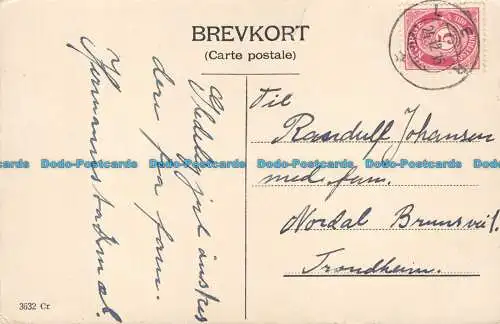 BREVKORT
(Carte postale)
Glædelig jul ønskes
dere fra fam.
Til
Randulf Johansen
med fam.
Nordal Brunsvei.
Trondheim.
3632 Cr
Dodo-Postcards Dodo-Postcards Dodo-Postcards Dodo-Postcards
Dodo-Postcards Dodo-Postcards Dodo-Postcards Dodo-Postcards